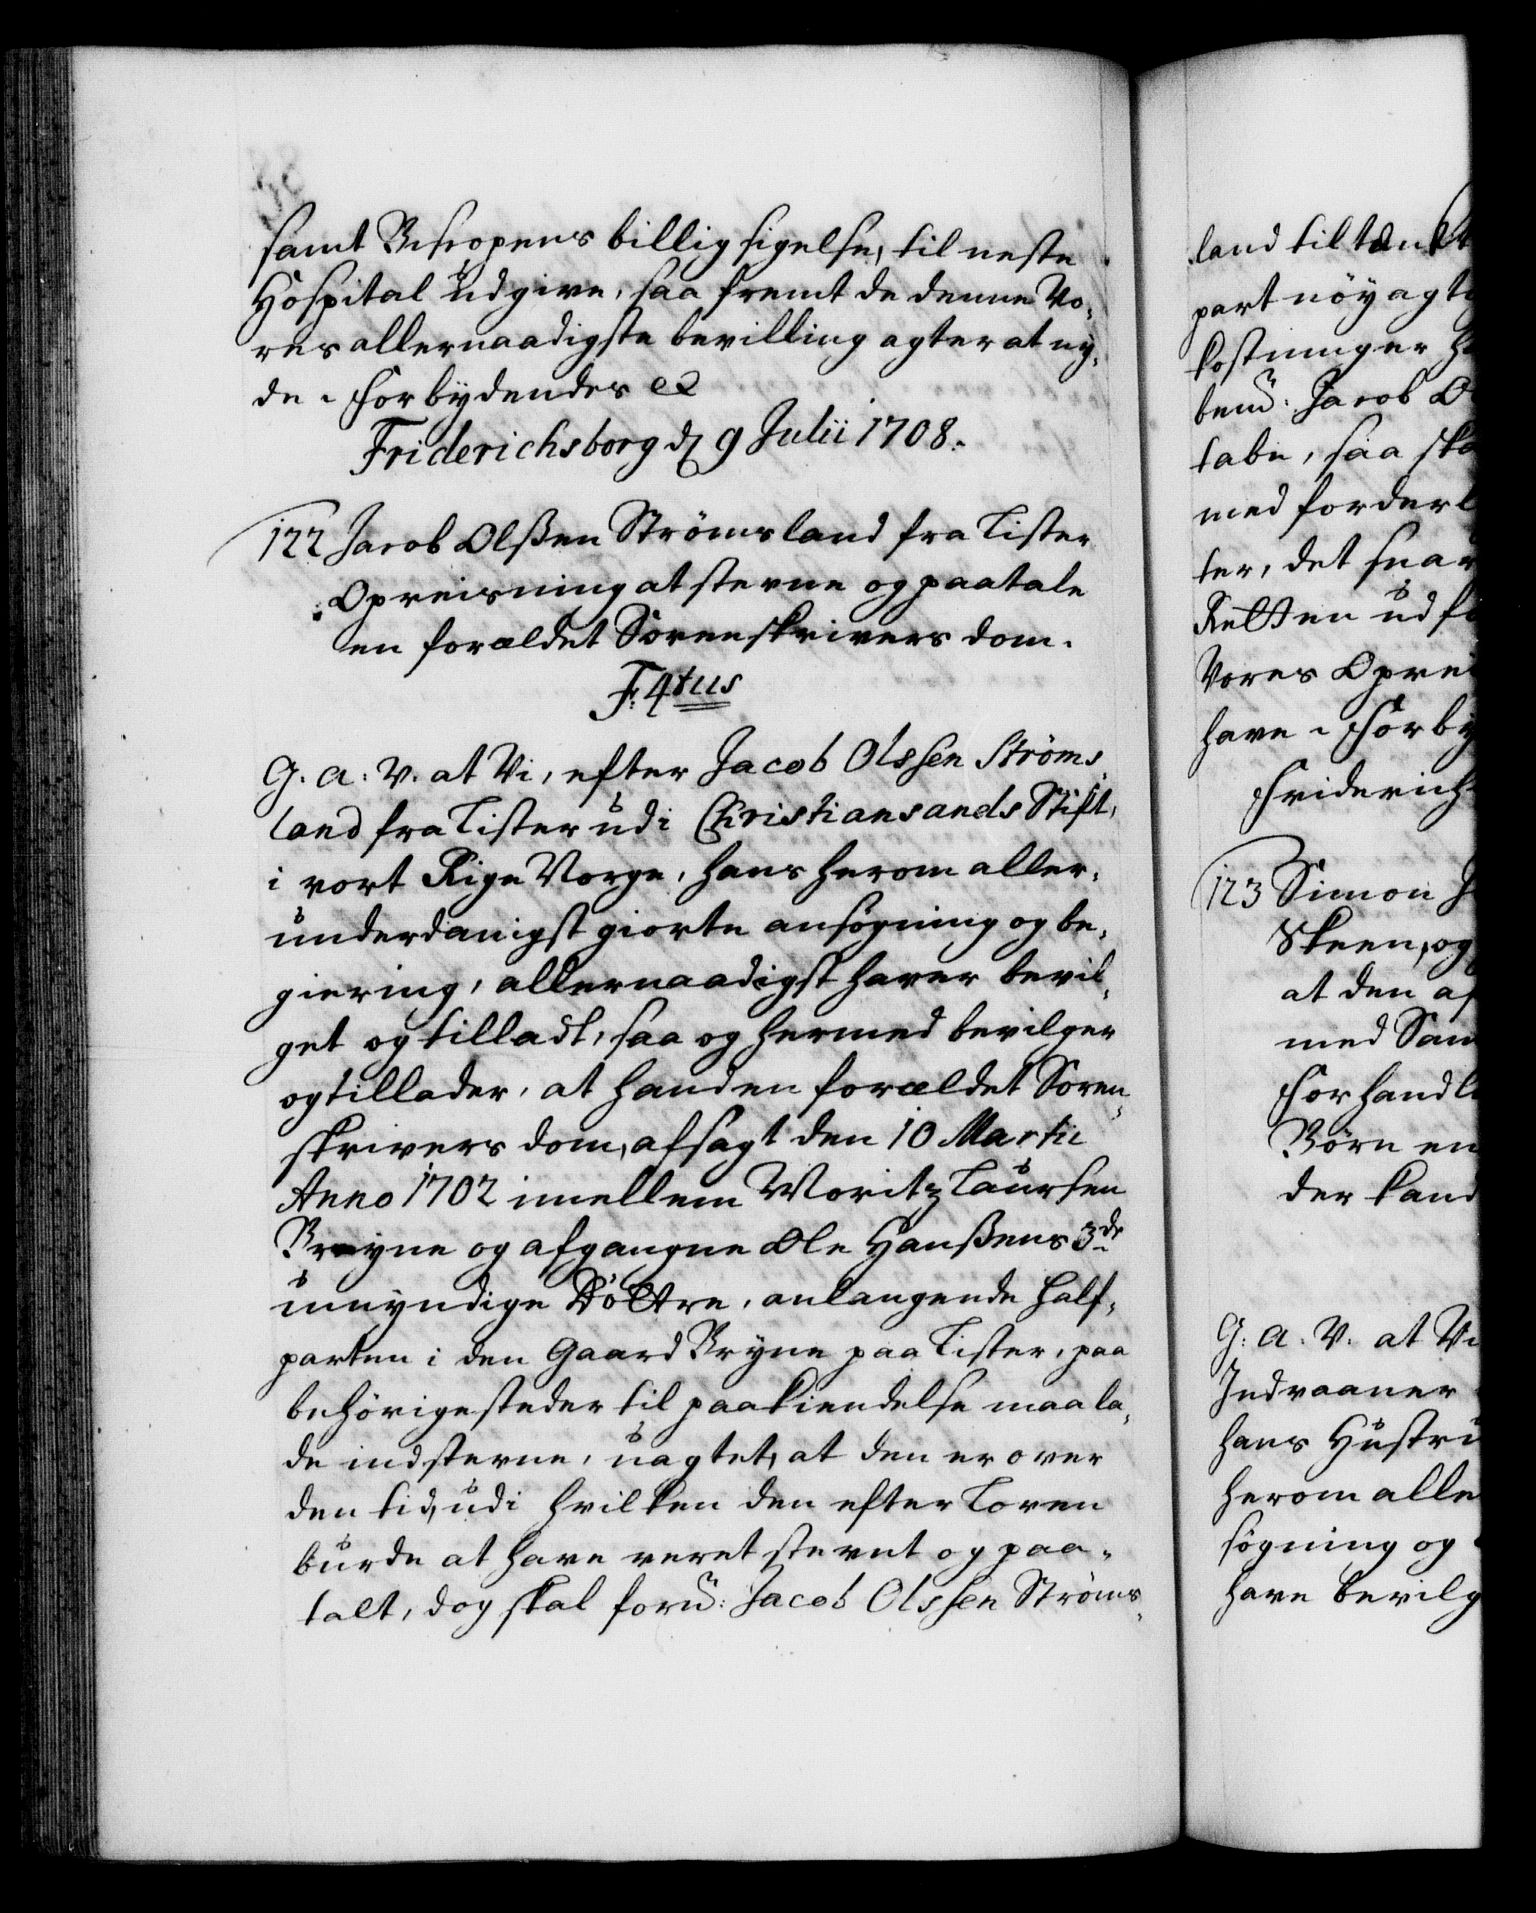 samt Biscopens billig sigelse, til neste
Hospital udgive, saa fremt de denne Vo-
res allernaadigste bevilling agter at ny-
de. Forbydendes &c
Friderichsborg d 9 Julii 1708.
122 Jacob Olssen Strömsland fra Lister
Opreisning at stevne og paatale
en forældet Sorenskrivers dom.
F: 4tus
G. A: V. at Vi, efter Jacob Olssen Ströms-
land fra Lister udi Christiansands Stift,
i vort Rige Norge, hans herom aller-
underdanigst giorte ansøgning og be-
giering, allernaadigst haver bevil-
get og tilladt, saa og hermed bevilger
og tillader, at hand en forældet Soren-
skrivers dom, afsagt den 10 Martii
Anno 1702 imellem Moritz Laursen
Bryne og afgangne Ole Hanssens 3de
umyndige Döttre, anlangende half-
parten i den Gaard Bryne paa Lister, paa
behörige steder til paakiendelse maa la-
de indstevne, uagtet, at den er over
den tid, udi hvilken den efter Loven
burde at have veret stevnt og paa-
talt, dog skal forñ: Jacob Olssen Ströms-
land tiltænkt
part nöyagt
kostninger
bemñ: Jacob
tabe, saa
med forderl
ter, det snar
Retten ud
Vores Oprei
have. Forby
Friderich
123 Simon
Skeen, og
at den af
med Sam
Forhandl
Børn en
der kand
G: A. V. at Vi
Indvaaner
hans Hustru
herom alle
søgning og
have bevilg